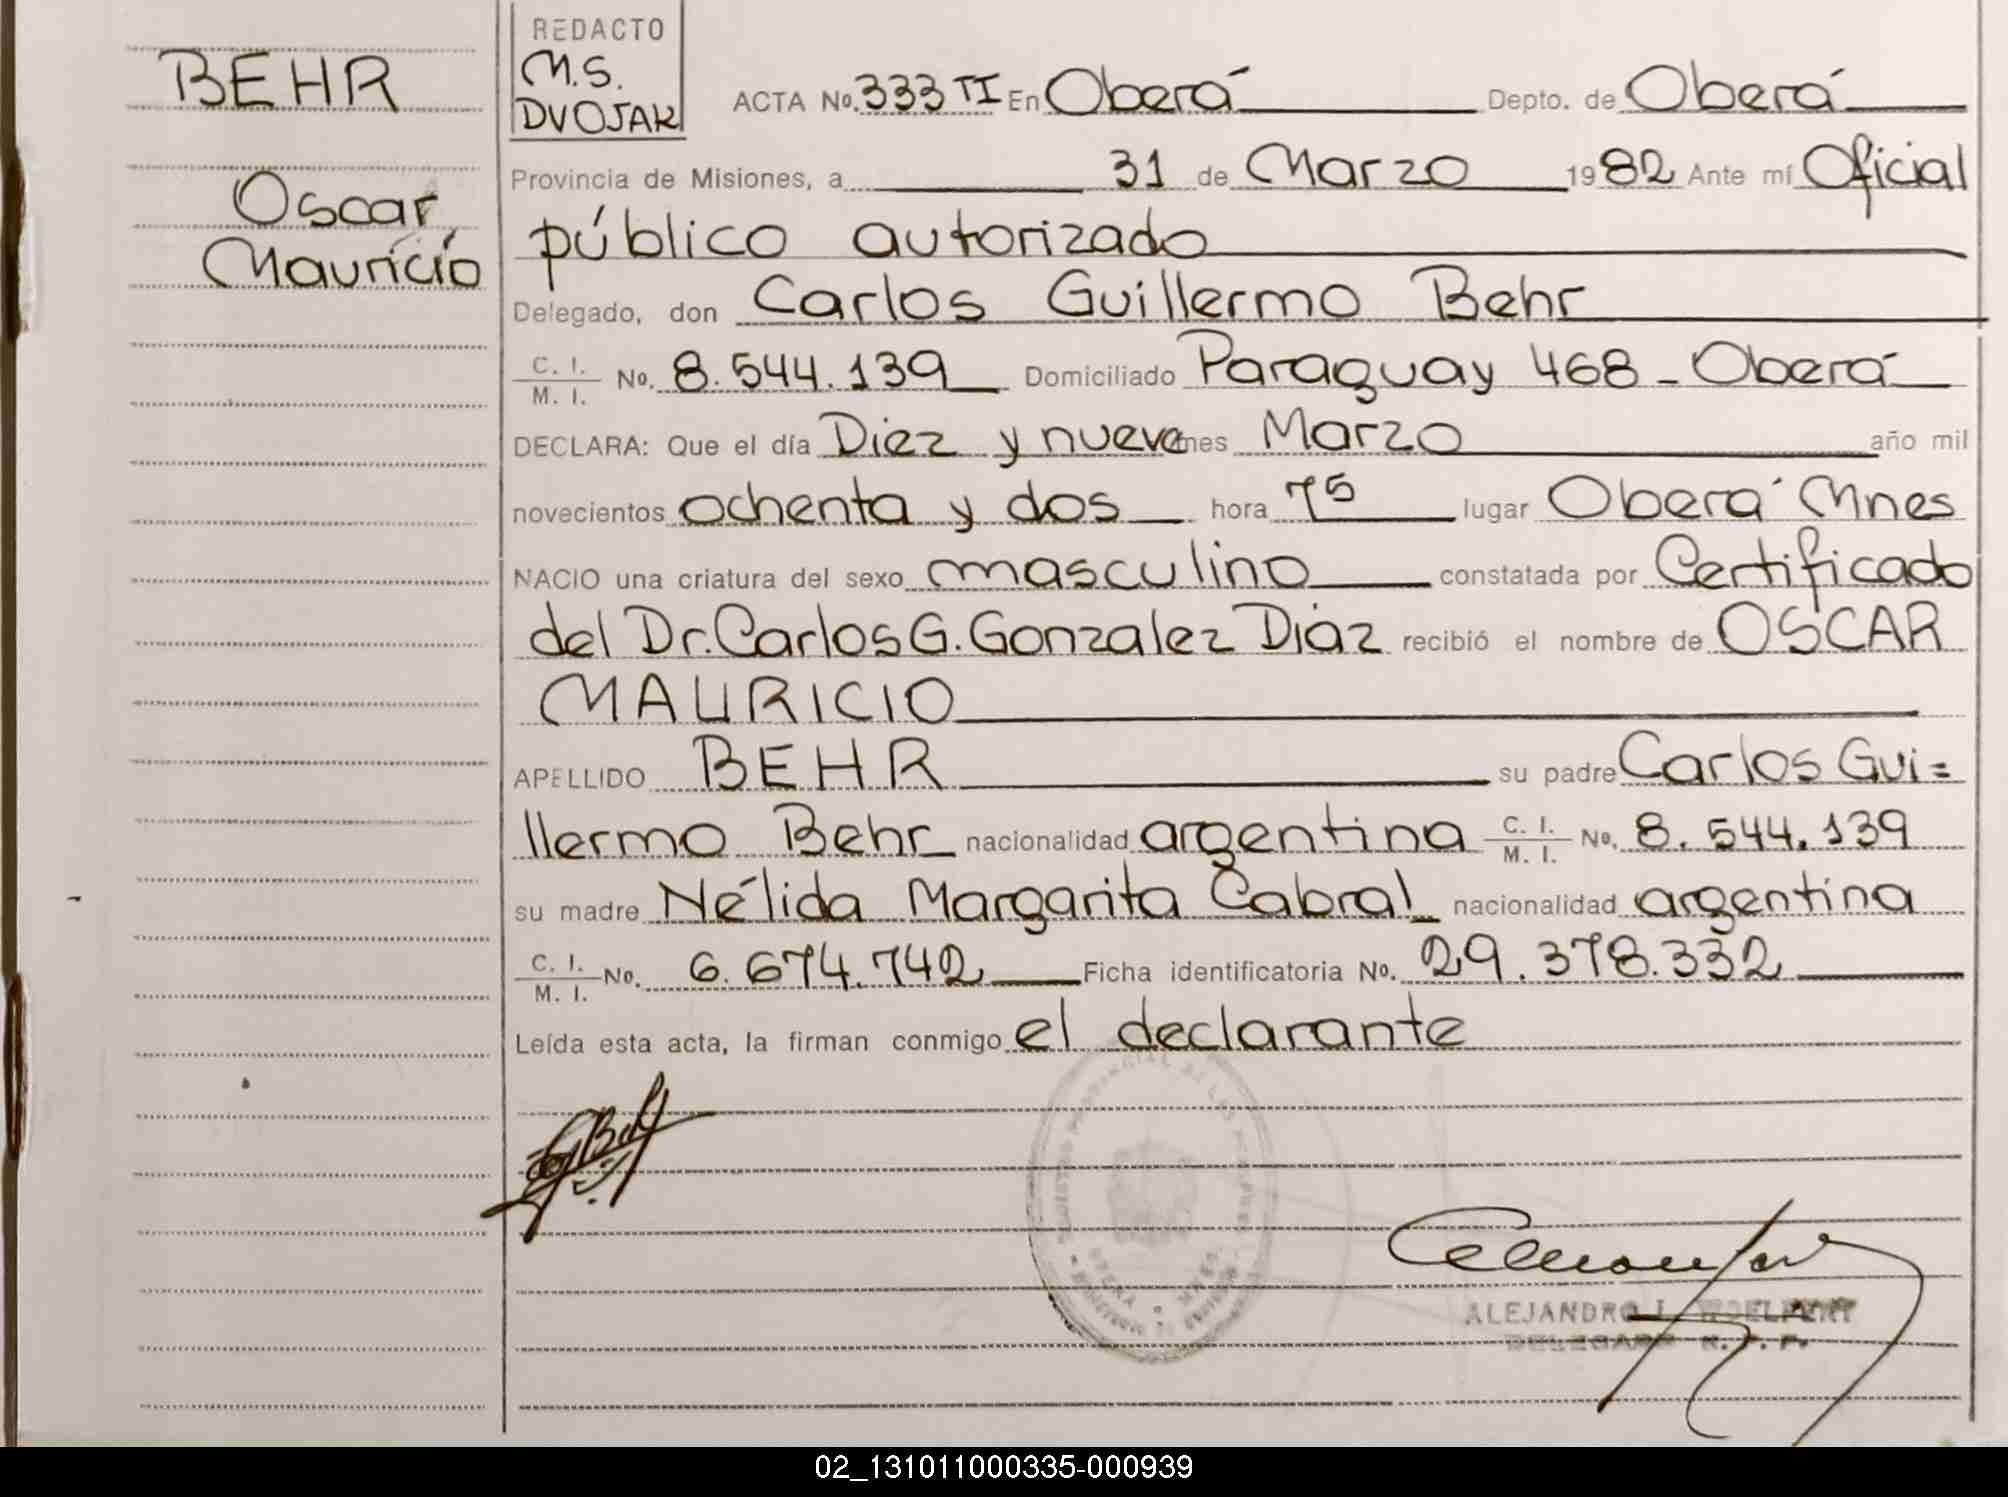 BEHR
Oscar
Mauricio
REDACTO
M.S.
DVOJAK
ACTA No. 333 TI En Oberá Depto. de Oberá
Provincia de Misiones, a 31 de Marzo 1982 Ante mí Oficial
público autorizado
Delegado, don Carlos Guillermo Behr
C. I. / M. I. No. 8.544.139 Domiciliado Paraguay 468 - Oberá
DECLARA: Que el día Diez y nueve mes Marzo año mil
novecientos ochenta y dos hora 7⁵ lugar Oberá Mnes
NACIO una criatura del sexo masculino constatada por Certificado
del Dr. Carlos G. Gonzalez Diaz recibió el nombre de OSCAR
MAURICIO
APELLIDO BEHR su padre Carlos Gui=
llermo Behr nacionalidad argentina C. I. / M. I. No. 8.544.139
su madre Nélida Margarita Cabral nacionalidad argentina
C. I. / M. I. No. 6.674.742 Ficha identificatoria No. 29.378.332
Leída esta acta, la firman conmigo el declarante
ALEJANDRO
02_131011000335-000939